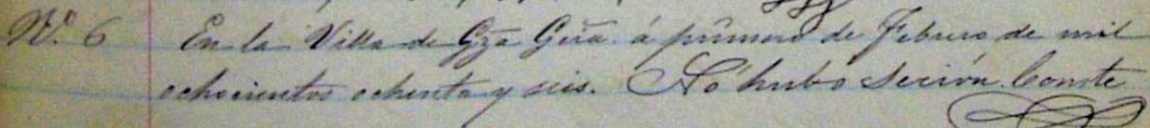 Nº 6 En la Villa de Gza Gcia. á primero de Febrero de mil
ochocientos ochenta y seis. Nó hubo seción. Conste